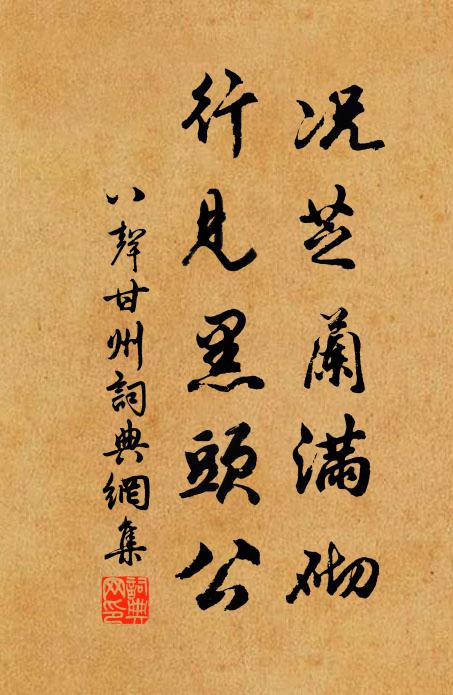 况芝蘭滿砌
行見黑頭公
八聲甘州詞典網集
詞典
网印